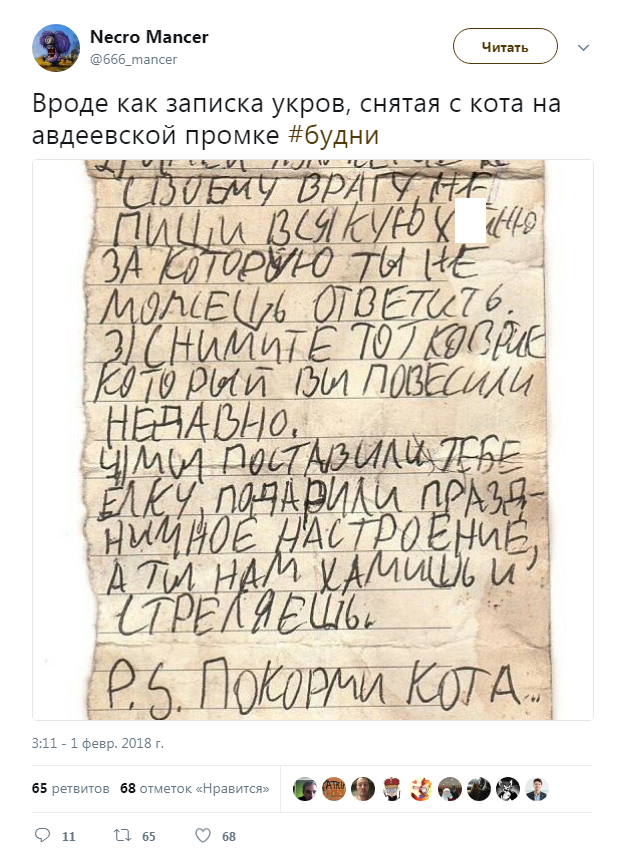 Necro Mancer
@666_mancer
Читать
Вроде как записка укров, снятая с кота на
авдеевской промке #будни
СВОЕМУ ВРАГУ НЕ
ПИШИ ВСЯКУЮ Х НЮ
ЗА КОТОРУЮ ТЫ НЕ
МОЖЕШЬ ОТВЕТИТЬ.
3) СНИМИТЕ ТОТ КОВРИК
КОТОРЫЙ ВЫ ПОВЕСИЛИ
НЕДАВНО.
4) МЫ ПОСТАВИЛИ ТЕБЕ
ЁЛКУ, ПОДАРИЛИ ПРАЗД-
НИЧНОЕ НАСТРОЕНИЕ,
А ТЫ НАМ ХАМИШЬ И
СТРЕЛЯЕШЬ.
P.S. ПОКОРМИ КОТА...
3:11 - 1 февр. 2018 г.
65 ретвитов 68 отметок «Нравится»
11 65 68